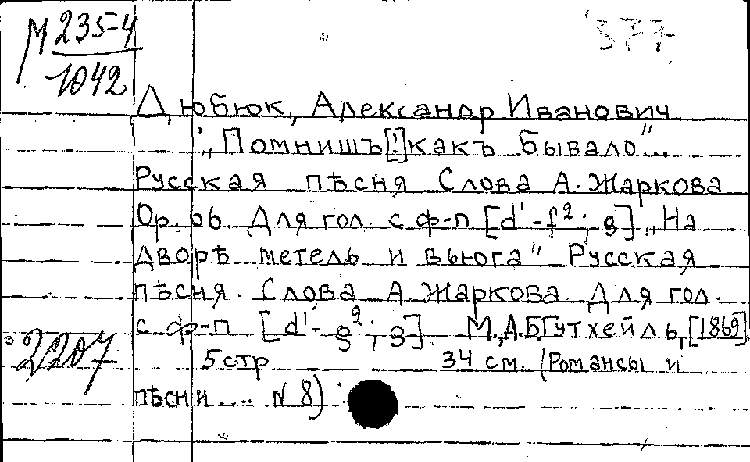 М 235-4
1042
377
Дюбюк, Александр Иванович
"Помнишъ[,]какъ бывало"...
Русская пѣсня Слова А. Жаркова
Ор. 66 Для гол. с ф-п [d'-f²; g] „На
дворѣ метель и вьюга" Русская
пѣсня. Слова А. Жаркова. Для гол.
с ф-п [d'-g²; g]. М., А.Б. Гутхейль, [1869]
2207
5 стр 34 см. (Романсы и
пѣсни.... N 8)